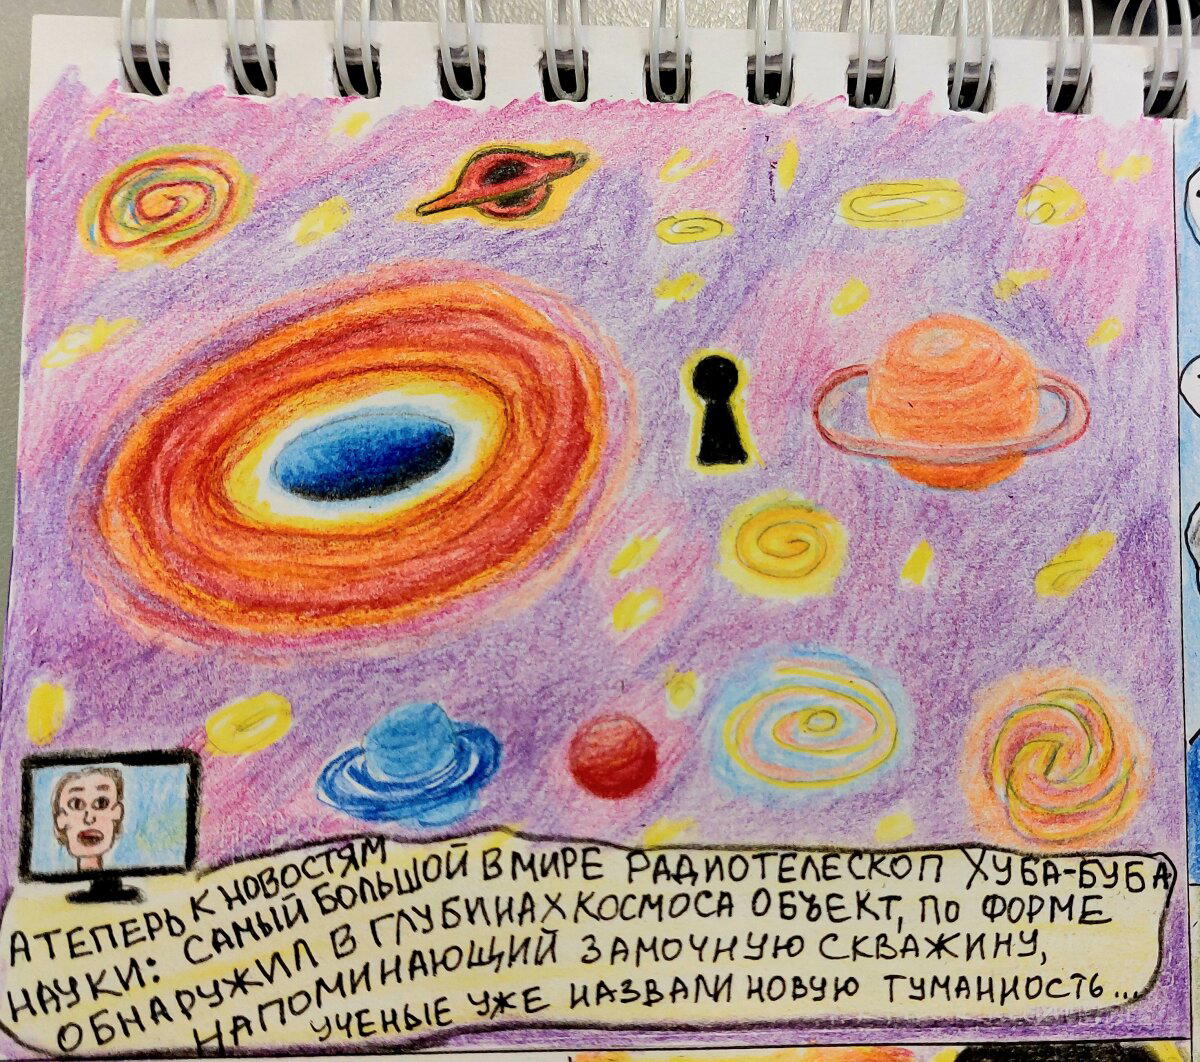 А ТЕПЕРЬ К НОВОСТЯМ
НАУКИ: САМЫЙ БОЛЬШОЙ В МИРЕ РАДИОТЕЛЕСКОП ХУБА-БУБА
ОБНАРУЖИЛ В ГЛУБИНАХ КОСМОСА ОБЪЕКТ, ПО ФОРМЕ
НАПОМИНАЮЩИЙ ЗАМОЧНУЮ СКВАЖИНУ,
УЧЕНЫЕ УЖЕ НАЗВАЛИ НОВУЮ ТУМАННОСТЬ...